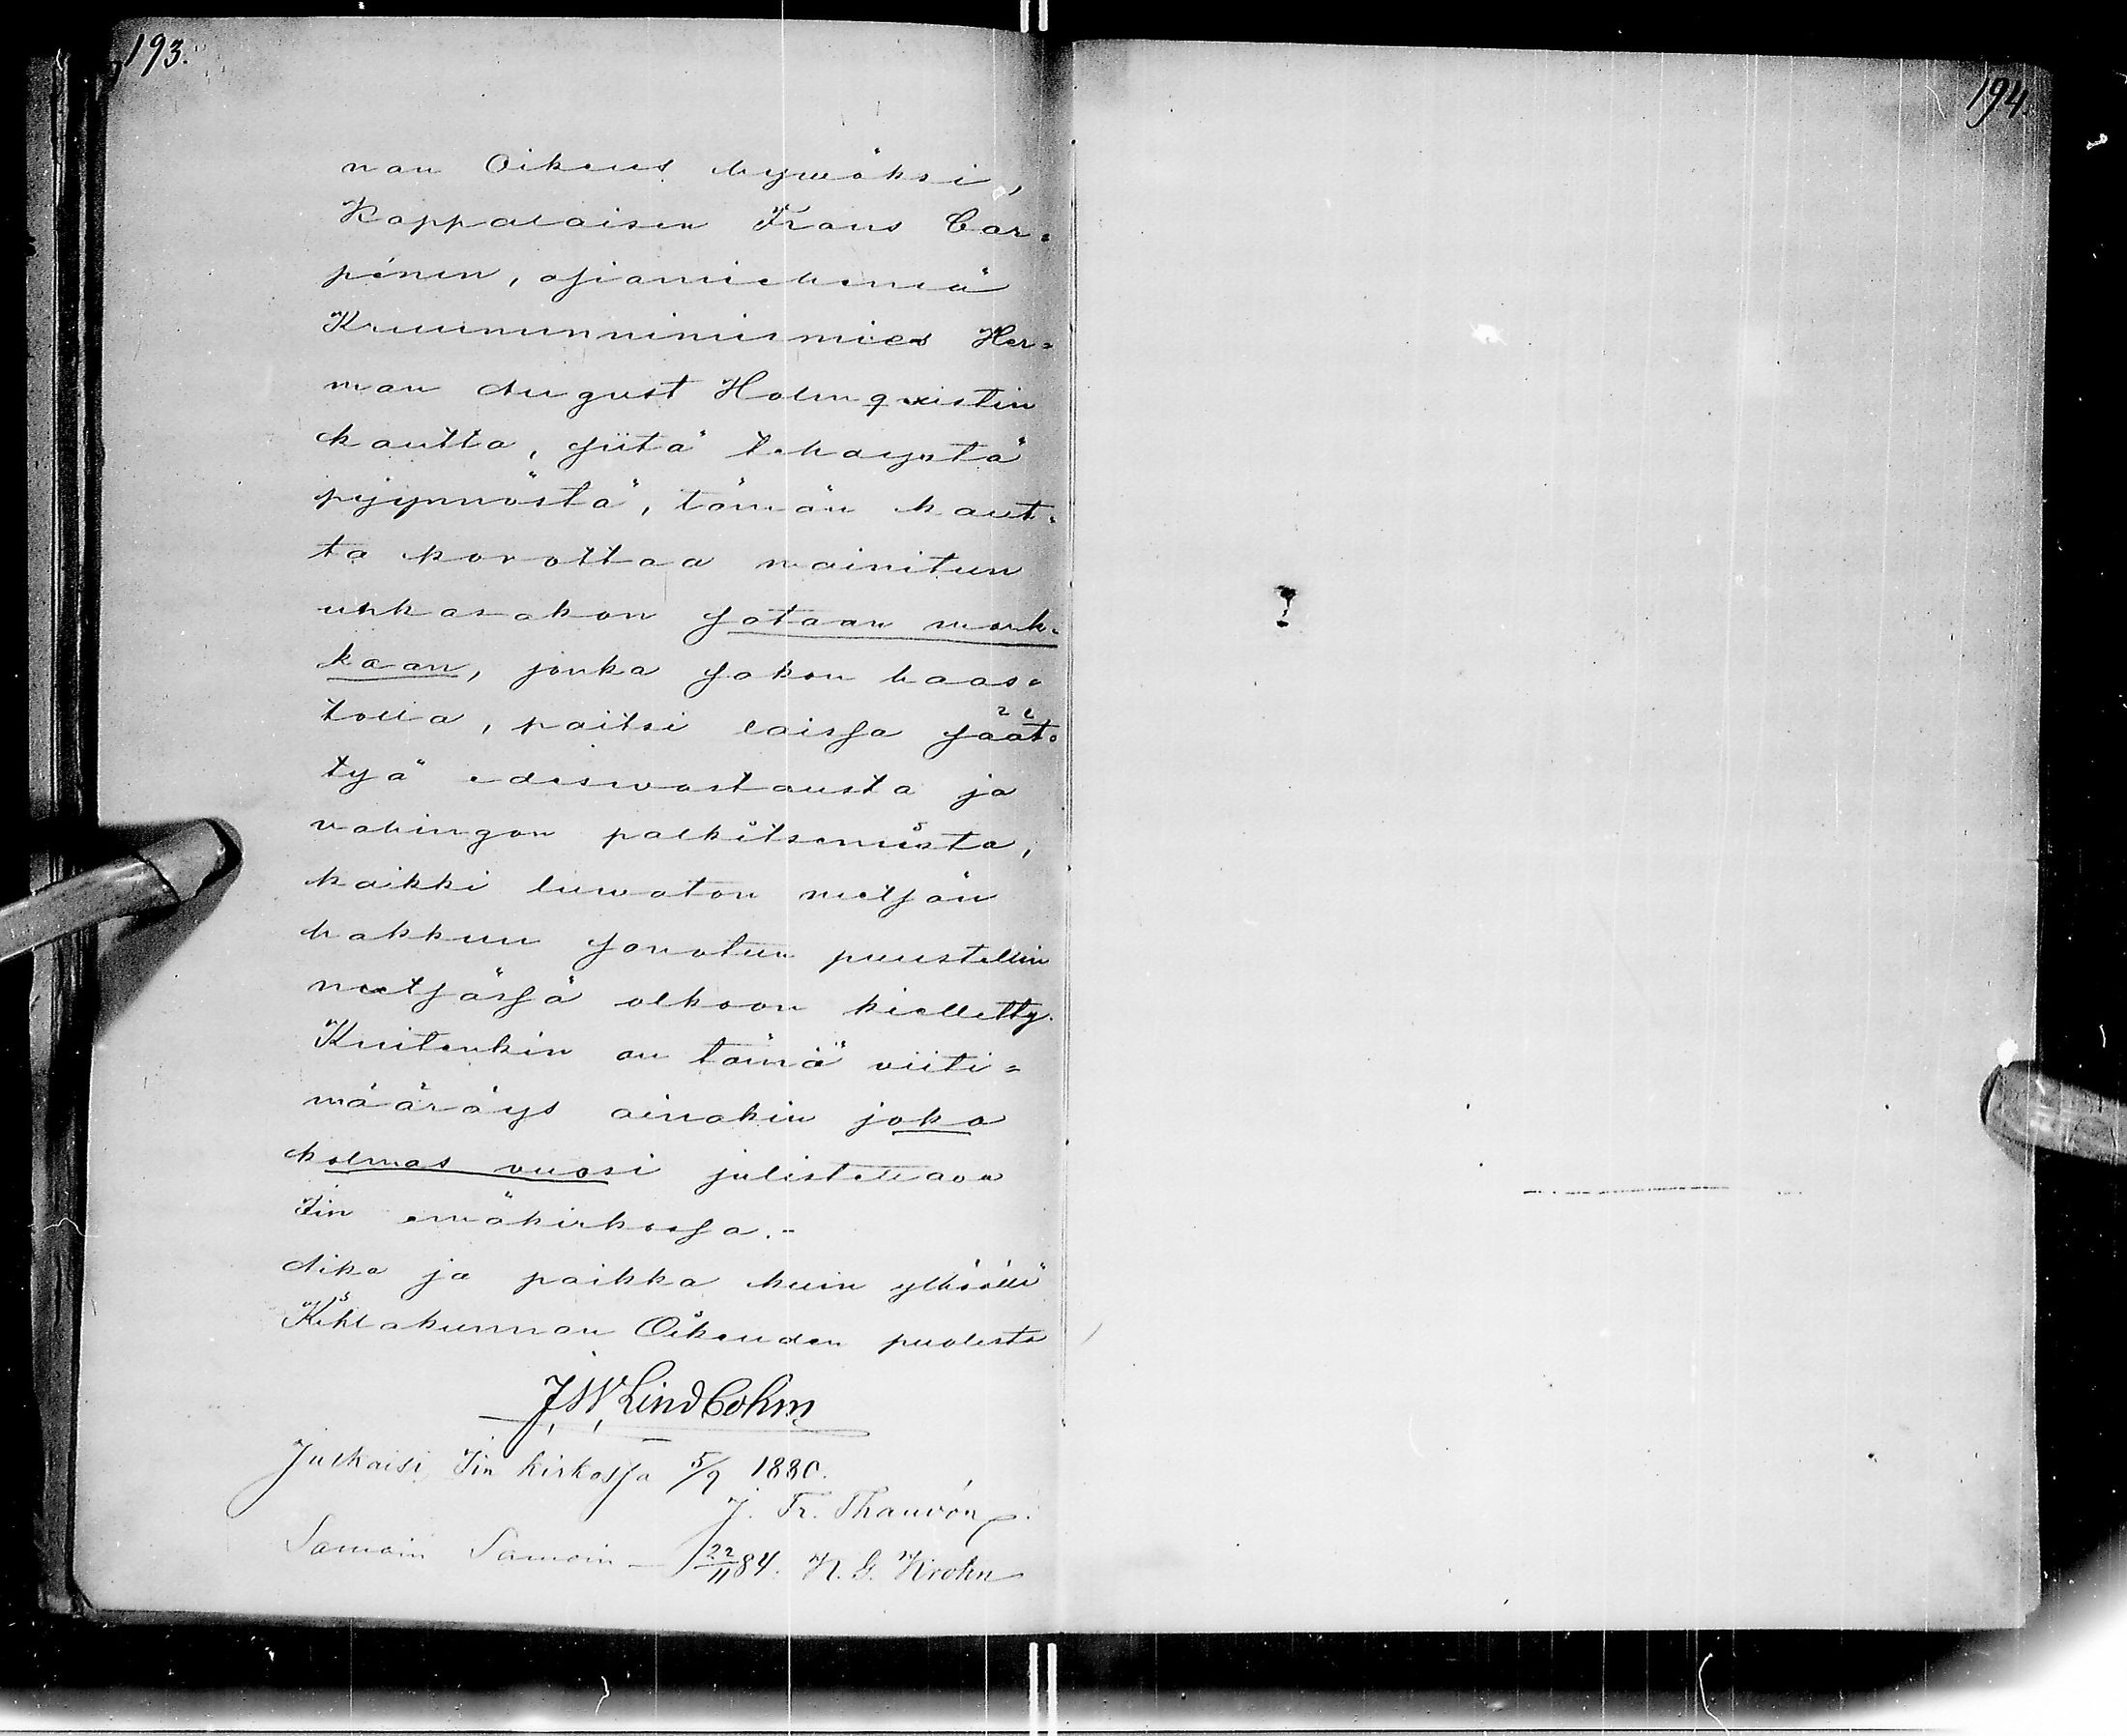 193.
194.
nan Oikeus hywäksi,
Kappalaisen Frans Car=
pénin, asiamiehensä
Kruununnimismies Her=
man August Holmqvistin
kautta, siitä tehdystä
pyynnöstä, tämän kaut=
ta korottaa mainitun
uhkasakon sataan mark=
kaan, jonka sakon haas=
tolla, paitsi laissa säät=
tyä edeswastausta ja
vahingon palkitsemista,
kaikki luwaton metsän
hakkuu sanotun puustellin
metsässä olkoon kielletty.
Kuitenkin on tämä viiti=
määräys ainakin joka
kolmas vuosi julistettava
Iin emäkirkossa.-
Aika ja paikka kuin ylhäällä
Kihlakunnan Oikeuden puolesta
J. W. Lindbohm
Julkaisi Iin kirkossa 5/9 1880.
J. Fr. Thauvón
Samoin Samoin - 22/11 84. K. G. Krohn